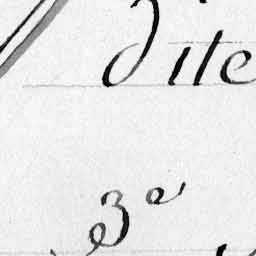 dite
3e